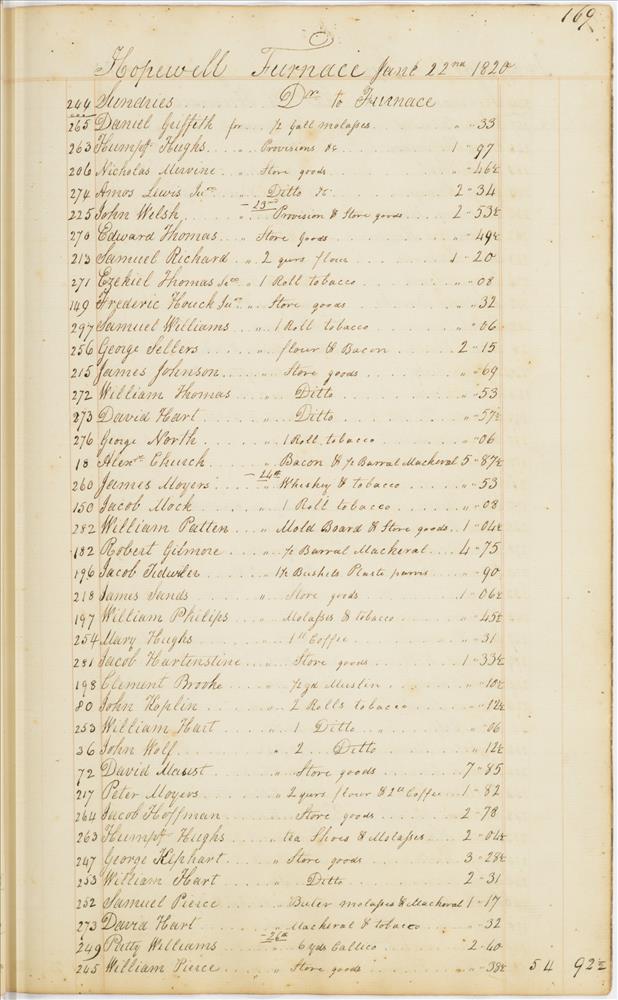 169
Hopewell Furnace June 22nd 1820
244 Sundries . . . . . Dr. to Furnace
265 Daniel Griffith for . . ½ Gall molasses . . . " " 33
263 Humpy Hughs . . . " Provisions &c . . . 1 " 97
206 Nicholas Mervine . . " Store goods . . . " " 46½
274 Amos Lewis Junr . . " Ditto &c . . . 2 - 34
– 23rd –
225 John Welsh . . . " Provision & Store goods . . . 2 - 53½
270 Edward Thomas . . . " Store Goods . . . " - 49½
213 Samuel Richard . . " 2 qurs flour . . . 1 - 20
271 Ezekiel Thomas " 1 Roll tobacco . . . " - 08
149 Frederic Houck Junr . . " Store goods . . . " " 32
297 Samuel Williams . . . " 1 Roll tobacco . . . " " 06
256 George Sellers . . . " flour & Bacon . . . 2 - 15
215 James Johnson . . . " Store goods . . . " - 69
272 William Thomas . . . " Ditto . . . " - 53
273 David Hart . . . " Ditto . . . " - 57½
276 George North . . . " 1 Roll tobacco . . . " - 06
18 Alexr Church . . . " Bacon & ½ Barral Mackeral 5 - 87½
– 24th –
260 James Moyers . . . " Whiskey & tobacco . . . " - 53
150 Jacob Mock . . . " 1 Roll tobacco . . . " - 08
282 William Patten . . . " Mold Board & Store goods . . 1 - 04½
182 Robert Gilmore . . . " ½ Barral Mackeral . . . 4 - 75
196 Jacob " 1½ Bushels . . . " - 90
218 James Sands . . . " Store goods . . . 1 - 06½
197 William Philips . . . " Molasses & tobacco . . . " - 45½
254 Mary Hughs . . . " 1 lb Coffee . . . " - 31
281 Jacob Hartenstine . . . " Store goods . . . 1 - 33½
198 Clement Brooke . . . " ½ yd Muslin . . . " - 10½
80 John Koplin . . . " 2 Rolls tobacco . . . " - 12½
253 William Hart . . . " 1 Ditto . . . " - 06
36 John Wolf . . . " 2 Ditto . . . " 12½
72 David " Store goods . . . 7 - 85
217 Peter Moyers . . . " 2 qurs flour & 2 lb Coffee . . 1 - 82
264 Jacob Hoffman . . . Store goods . . . 2 - 78
263 Humpy Hughs . . . " tea Shoes & Molasses . . . 2 - 04½
247 George Kiphart . . . " Store goods . . . 3 - 28½
253 William Hart . . . " Ditto . . . 2 - 31
252 Samuel Pierce . . . " molasses & Mackeral 1 - 17
273 David Hart . . . " Mackeral & tobacco . . . - 32
– 26th –
249 Patty Williams . . . " 6 yds Callico . . . 2 - 40
245 William Pierce . . . " Store goods . . . " - 38½ 54 92½